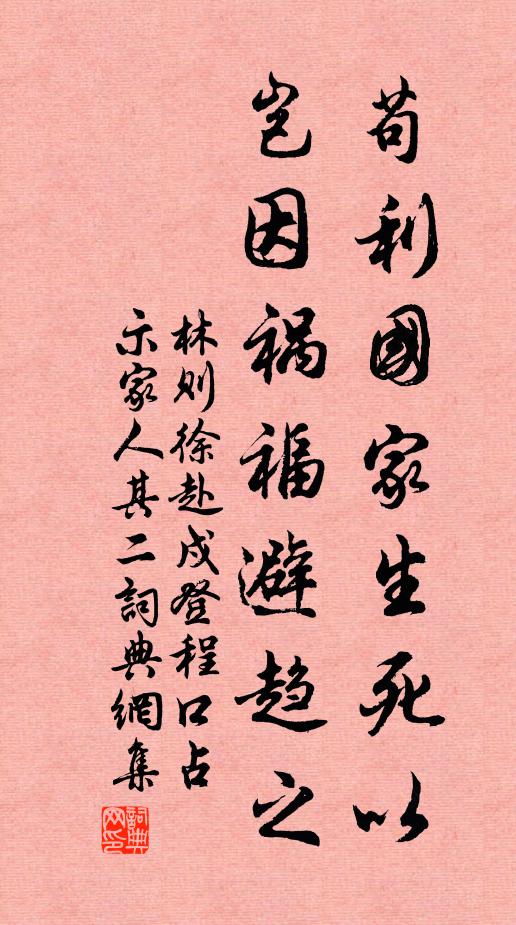 苟利國家生死以
豈因禍福避趨之
林则徐赴戍登程口占
示家人其二詞典網集
詞典网印